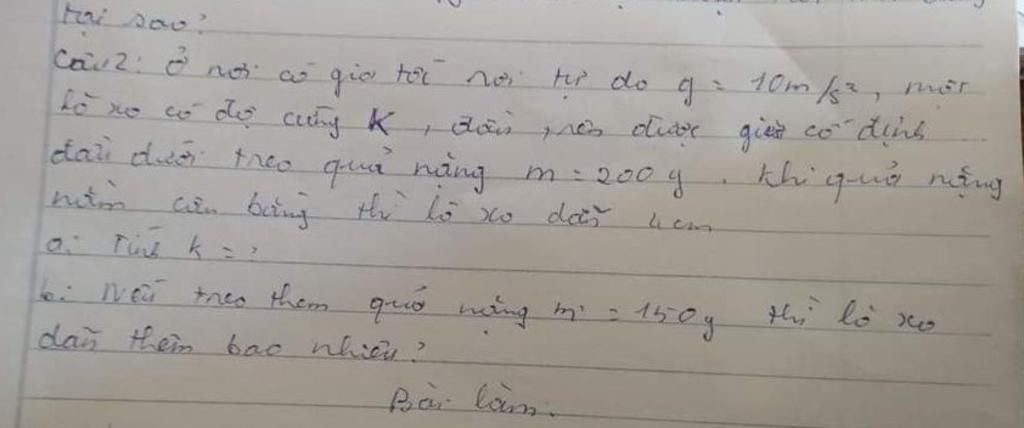 tại sao?
Câu 2: Ở nơi có gia tốc rơi tự do g = 10m/s², một
lò xo có độ cứng K, đầu trên được giữ cố định
đầu dưới treo quả nặng m = 200g. Khi quả nặng
nằm cân bằng thì lò xo dãn 4cm
a: Tính k = ?
b: Nếu treo thêm quả nặng m' = 150g thì lò xo
dãn thêm bao nhiêu?
Bài làm.